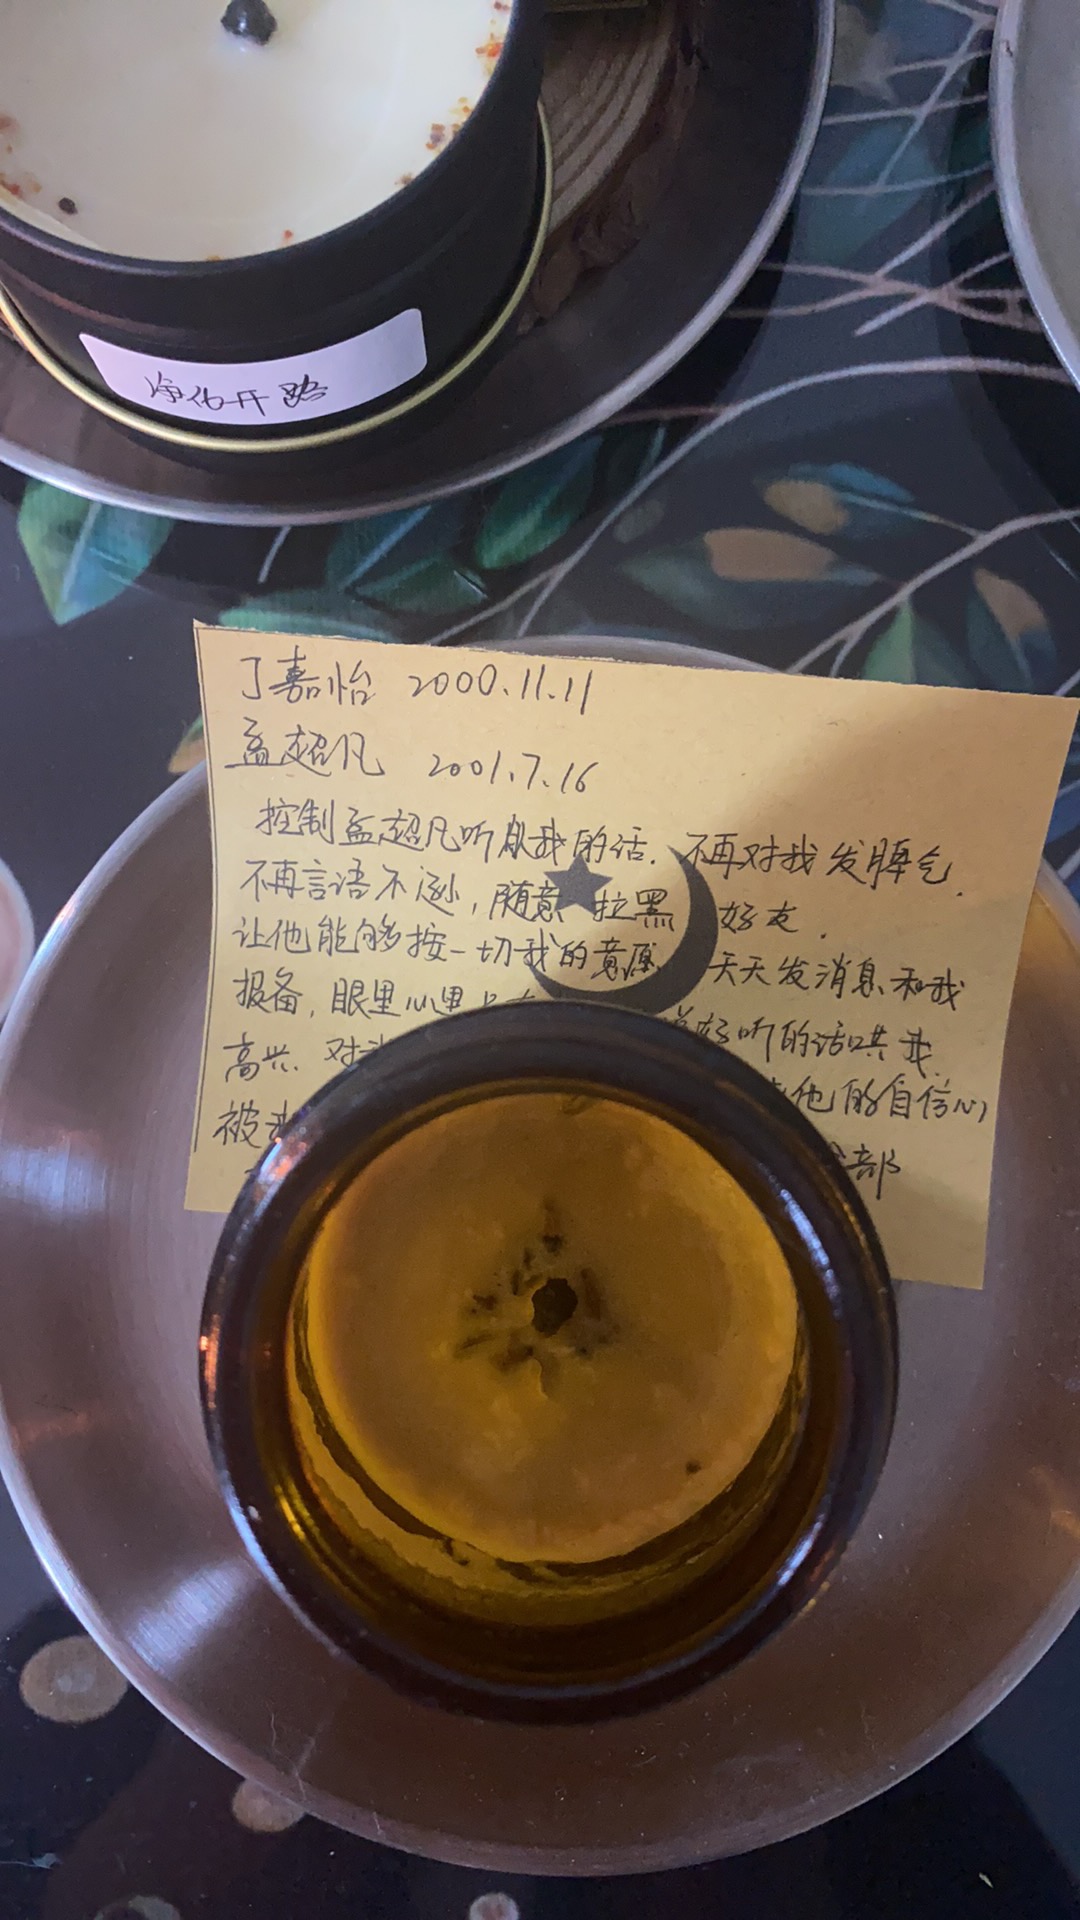 净化开路
丁嘉怡 2000.11.11
孟超凡 2001.7.16
控制孟超凡听从我的话. 不再对我发脾气.
不再言语不逊, 随意 拉黑 好友.
让他能够按一切我的意愿 天天发消息和我
报备, 眼里心里
高兴. 对我 好听的话哄我
被我 他的自信心
部